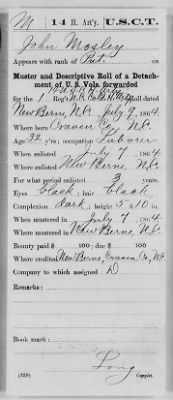 M 14 H. Art'y. U.S.C.T.
John Mosley
Appears with rank of Pvt. on
Muster and Descriptive Roll of a Detach-
ment of U. S. Vols. forwarded
for the 1 Reg't N.C. Col'd H. Art'y Roll dated
New Berne, N.C. July 9, 1864.
Where born Craven Co., N.C.
Age 32 y'rs; occupation Laborer
When enlisted July 7, 1864
Where enlisted New Berne, N.C.
For what period enlisted 3 years.
Eyes Black; hair Black
Complexion dark; height 5 ft. 10 in.
When mustered in July 7, 1864
Where mustered in New Berne, N.C.
Bounty paid $ 100; due $ 100
Where credited New Berne, Craven Co, N.C.
Company to which assigned D
Remarks:
Book mark:
Long
(339) Copyist.